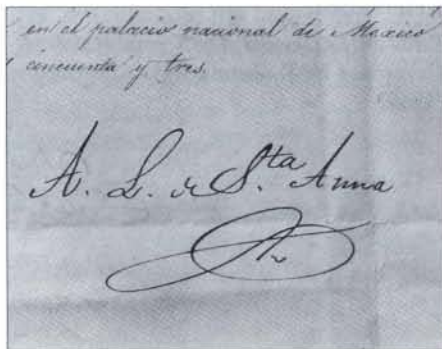 en el palacio nacional de Mexico
cincuenta y tres.
A. L. de S.ta Anna